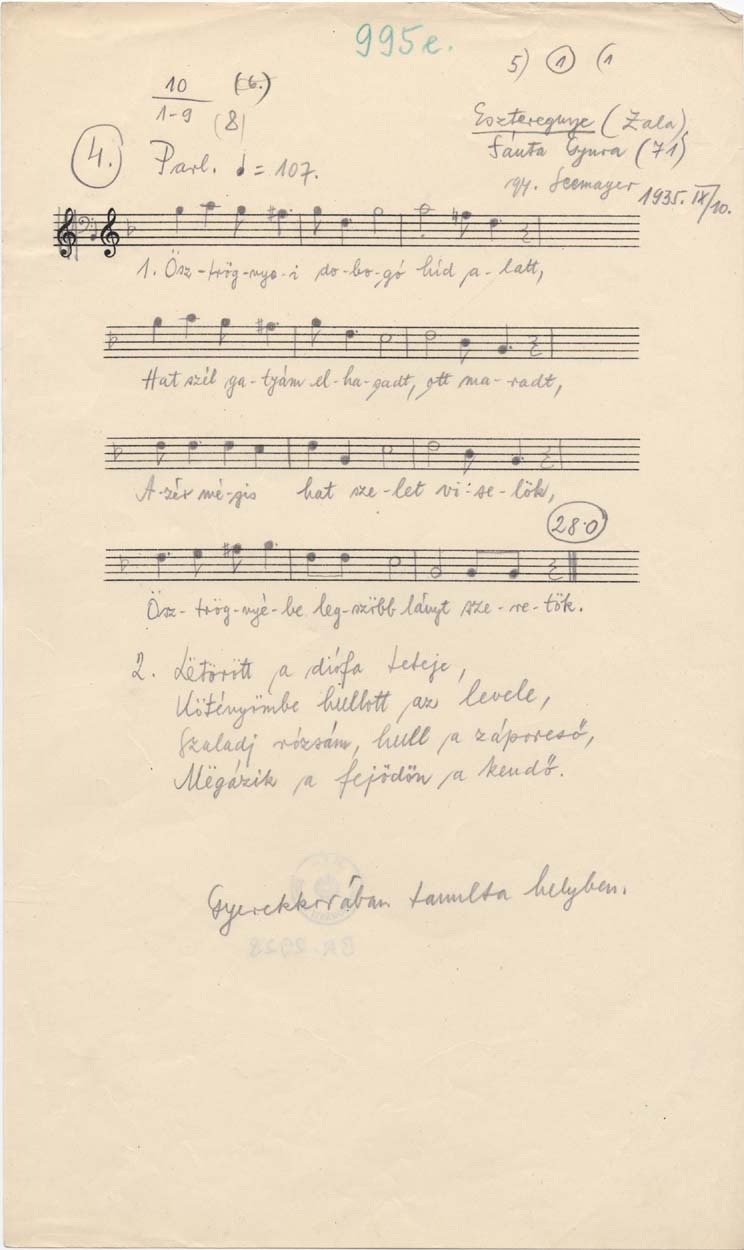 995e.
5) 1 (1
10 (6.)
1-9 (8)
Eszteregnye (Zala)
4. Parl. ♩ = 107.
Sánta Gyura (71)
gy. Seemayer 1935. IX/10.
1. Ösz-trög-nye-i do-bo-gó híd a-latt,
Hat szél ga-tyám el-ha-gadt, ott ma-radt,
A-zér mé-gis hat sze-let vi-se-lök,
28.0
Ösz-trög-nyé-be leg-szöbb lányt sze-re-tök.
2. Lëtörött a diófa teteje,
Kötényömbe hullott az levele,
Szaladj rózsám, hull a záporeső,
Mëgázik a fejödön a kendő.
Gyerekkorában tanulta helyben.
BR. 2928